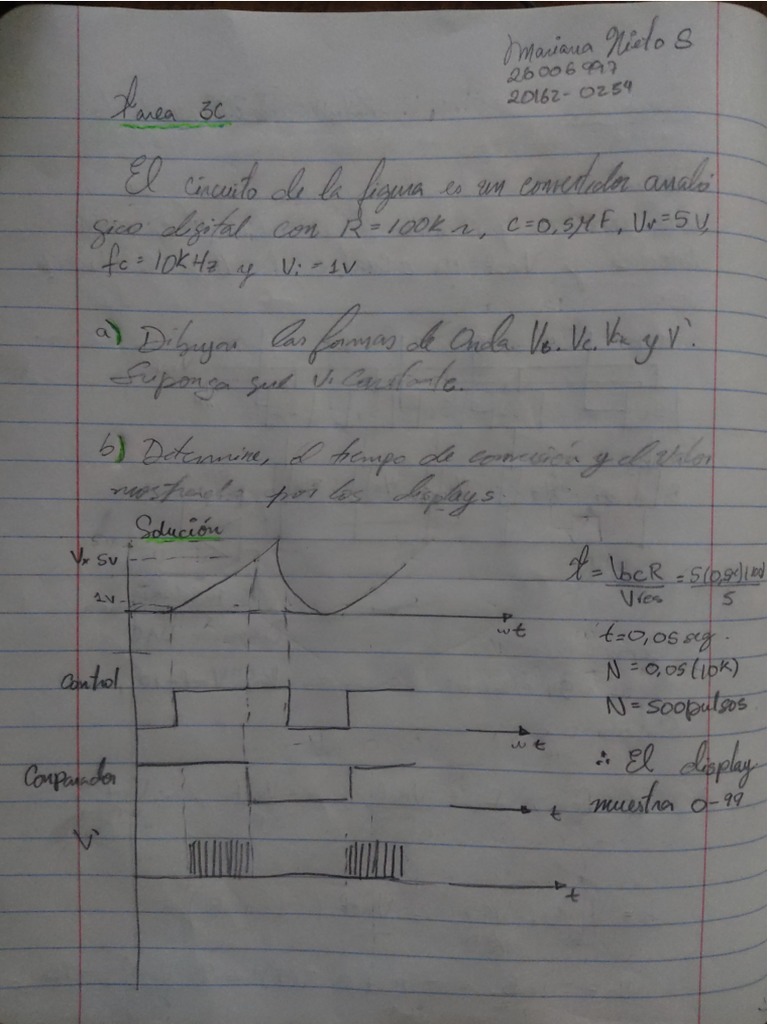 Mariana Nieto S
20006997
20162-0254
Tarea 3C
El circuito de la figura es un convertidor análo
gico digital con R = 100K Ω, C = 0,5 μF, Vr = 5V,
fc = 10KHz y Vi = 1V
a) Dibujar las formas de Onda Vo. Vc. Vx y V'.
Suponga que Vi Constante.
b) Determine, el tiempo de conversión y el valor
mostrado por los displays.
Solución
Vx 5V
1V
wt
Control
wt
Comparador
t
V'
t
t = VocR/Vres =
t = 0,05 seg.
N = 0,05(10K)
N = 500 pulsos
∴ El display
muestra 0-99